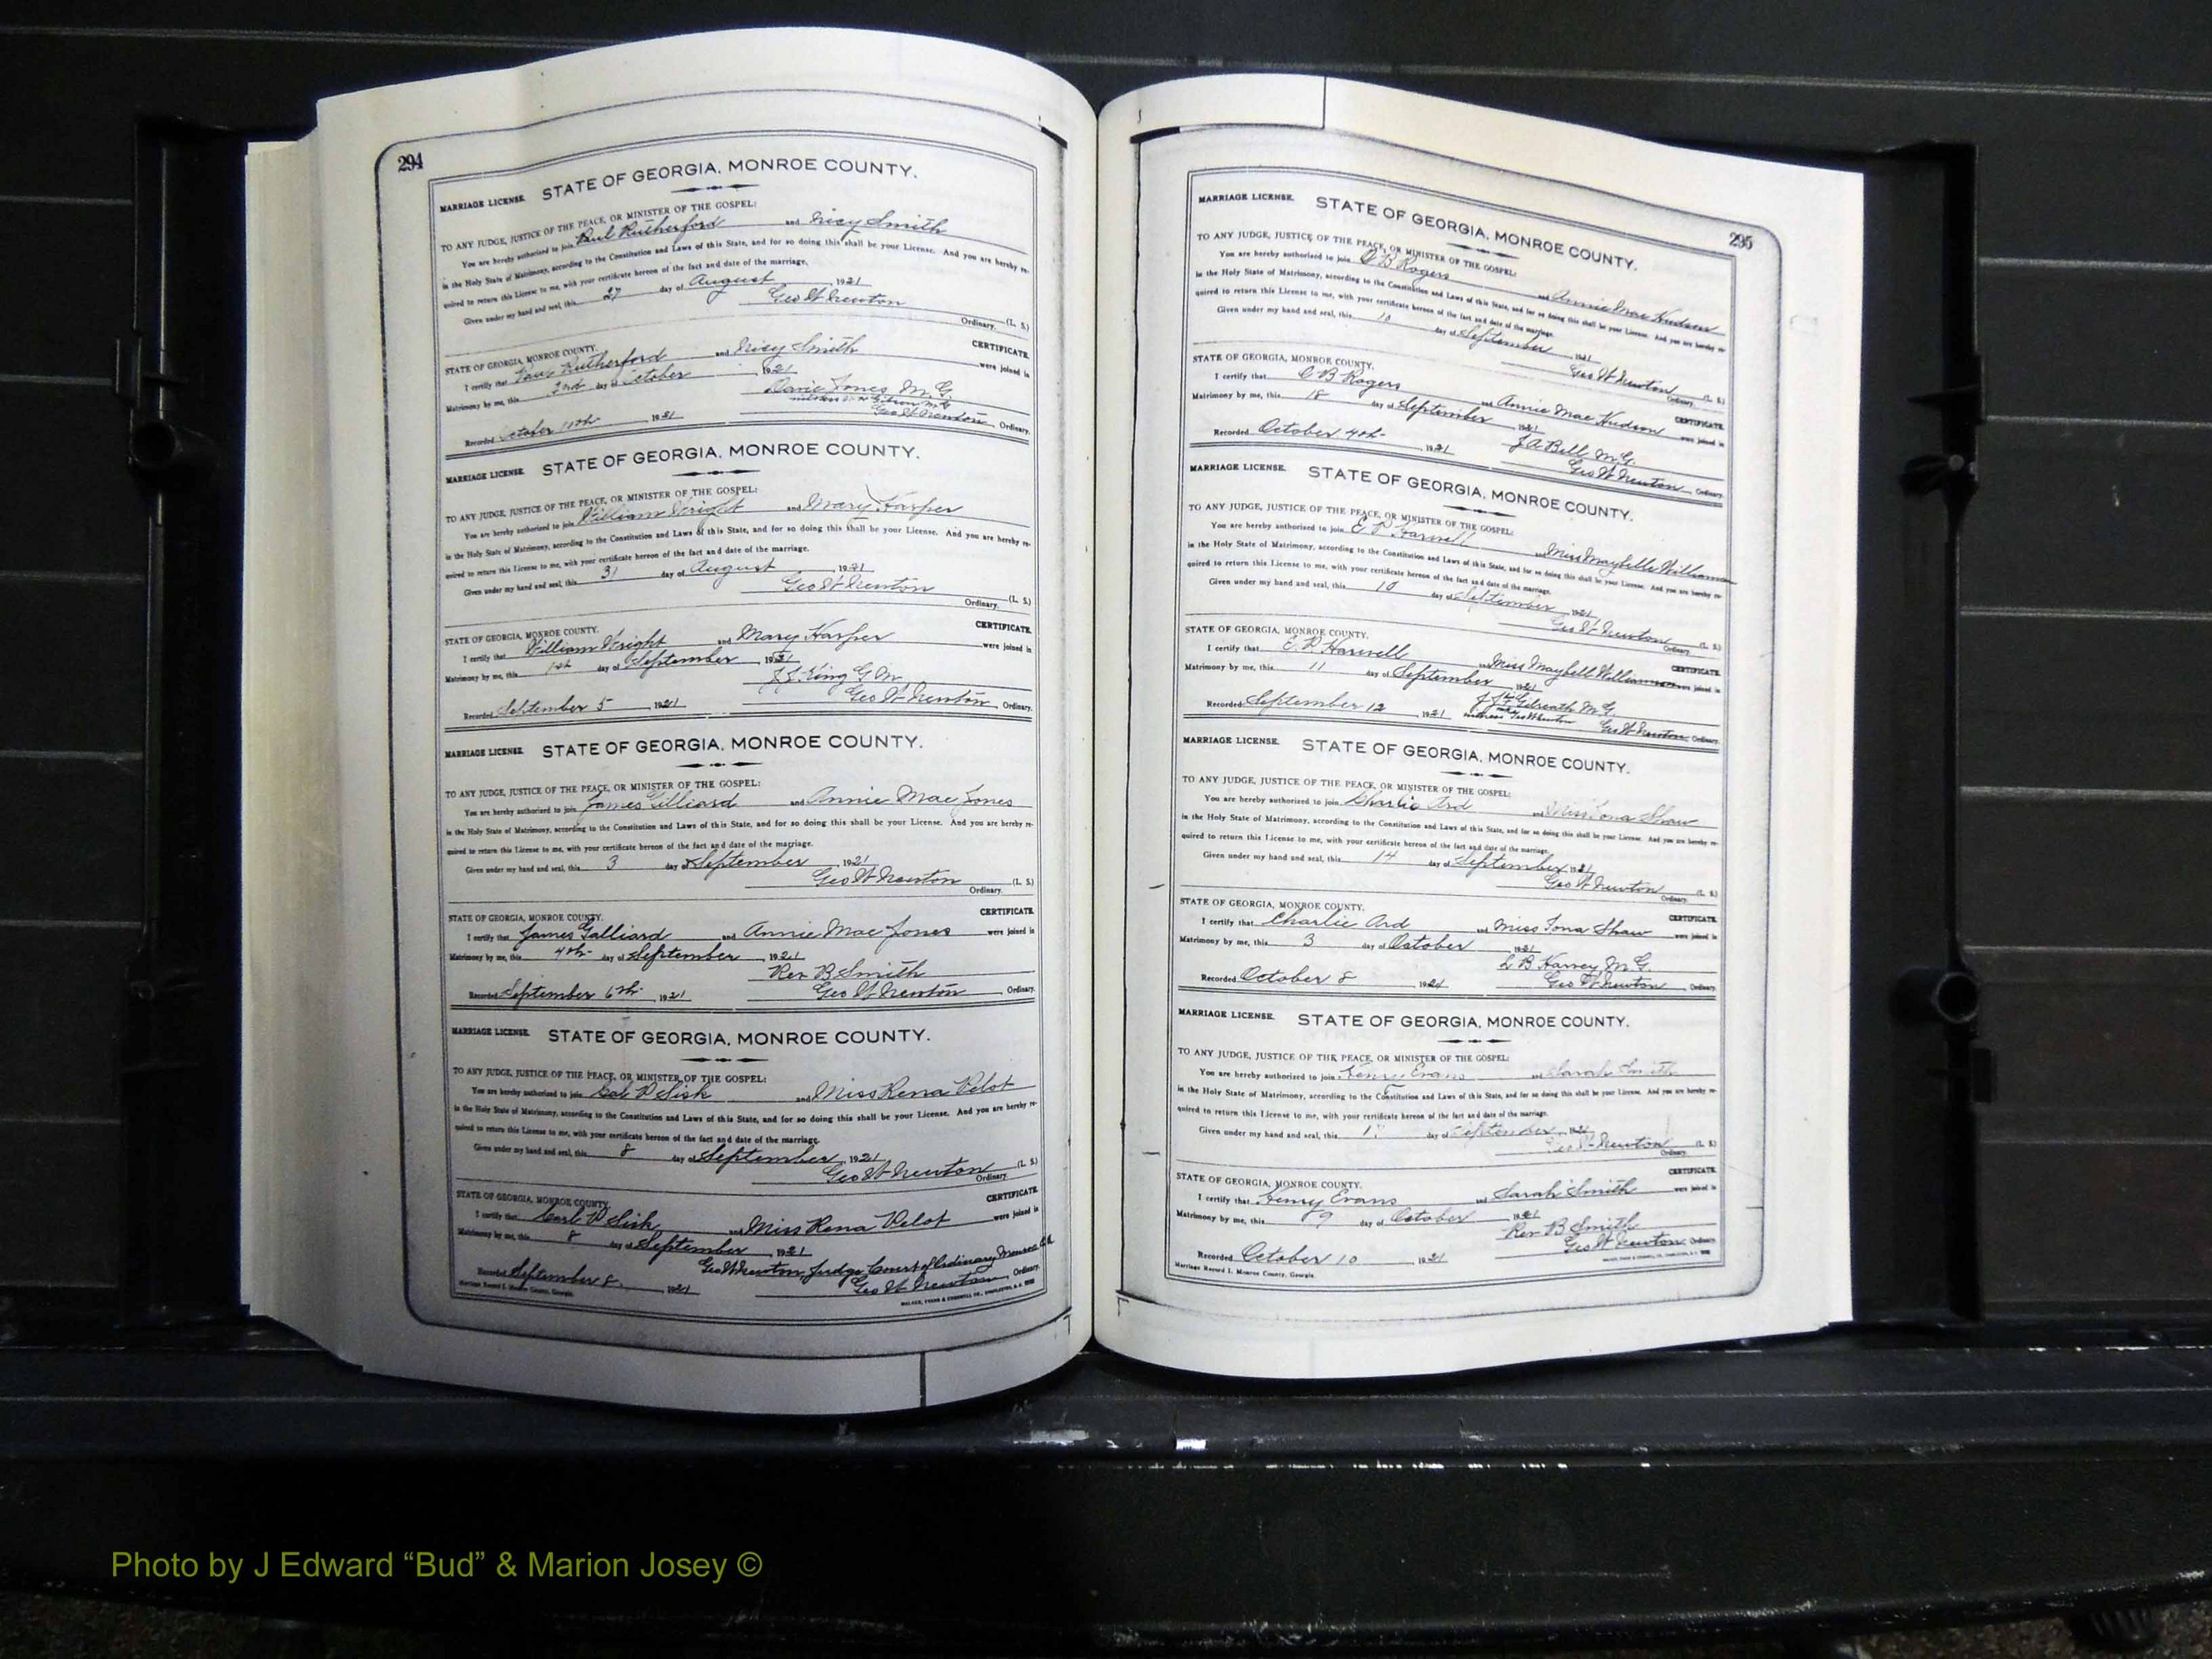 294
MARRIAGE LICENSE. STATE OF GEORGIA, MONROE COUNTY.
TO ANY JUDGE, JUSTICE OF THE PEACE, OR MINISTER OF THE GOSPEL:
You are hereby authorized to join Paul Rutherford and Nicy Smith
in the Holy State of Matrimony, according to the Constitution and Laws of this State, and for so doing this shall be your License. And you are hereby re-
quired to return this License to me, with your certificate hereon of the fact and date of the marriage.
Given under my hand and seal, this 27 day of August, 1921
Geo W Newton (L. S.)
Ordinary.
STATE OF GEORGIA, MONROE COUNTY. CERTIFICATE.
I certify that Paul Rutherford and Nicy Smith were joined in
Matrimony by me, this 2nd day of October, 1921
Davie Jones M. G.
Recorded October 10th 1921 Geo W Newton, Ordinary.
MARRIAGE LICENSE. STATE OF GEORGIA, MONROE COUNTY.
TO ANY JUDGE, JUSTICE OF THE PEACE, OR MINISTER OF THE GOSPEL:
You are hereby authorized to join William Wright and Mary Harper
in the Holy State of Matrimony, according to the Constitution and Laws of this State, and for so doing this shall be your License. And you are hereby re-
quired to return this License to me, with your certificate hereon of the fact and date of the marriage.
Given under my hand and seal, this 31 day of August, 1921
Geo W Newton (L. S.)
Ordinary.
STATE OF GEORGIA, MONROE COUNTY. CERTIFICATE.
I certify that William Wright and Mary Harper were joined in
Matrimony by me, this 1st day of September, 1921
J J King G M
Recorded September 5 1921 Geo W Newton, Ordinary.
MARRIAGE LICENSE. STATE OF GEORGIA, MONROE COUNTY.
TO ANY JUDGE, JUSTICE OF THE PEACE, OR MINISTER OF THE GOSPEL:
You are hereby authorized to join James Gilliard and Annie Mae Jones
in the Holy State of Matrimony, according to the Constitution and Laws of this State, and for so doing this shall be your License. And you are hereby re-
quired to return this License to me, with your certificate hereon of the fact and date of the marriage.
Given under my hand and seal, this 3 day of September, 1921
Geo W Newton (L. S.)
Ordinary.
STATE OF GEORGIA, MONROE COUNTY. CERTIFICATE.
I certify that James Galliard and Annie Mae Jones were joined in
Matrimony by me, this 4th day of September, 1921
Rev B Smith
Recorded September 6th 1921 Geo W Newton, Ordinary.
MARRIAGE LICENSE. STATE OF GEORGIA, MONROE COUNTY.
TO ANY JUDGE, JUSTICE OF THE PEACE, OR MINISTER OF THE GOSPEL:
You are hereby authorized to join Carl P Sisk and Miss Rena Pelot
in the Holy State of Matrimony, according to the Constitution and Laws of this State, and for so doing this shall be your License. And you are hereby re-
quired to return this License to me, with your certificate hereon of the fact and date of the marriage.
Given under my hand and seal, this 8 day of September, 1921
Geo W Newton (L. S.)
Ordinary.
STATE OF GEORGIA, MONROE COUNTY. CERTIFICATE.
I certify that Carl P Sisk and Miss Rena Pelot were joined in
Matrimony by me, this 8 day of September, 1921
Geo W Newton, Judge Court of Ordinary Monroe Co.
Recorded September 8, 1921 Geo W Newton, Ordinary.
Marriage Record I, Monroe County, Georgia.
295
MARRIAGE LICENSE. STATE OF GEORGIA, MONROE COUNTY.
TO ANY JUDGE, JUSTICE OF THE PEACE, OR MINISTER OF THE GOSPEL:
You are hereby authorized to join O B Rogers and Annie Mae Hudson
in the Holy State of Matrimony, according to the Constitution and Laws of this State, and for so doing this shall be your License. And you are hereby re-
quired to return this License to me, with your certificate hereon of the fact and date of the marriage.
Given under my hand and seal, this 10 day of September, 1921
Geo W Newton (L. S.)
Ordinary.
STATE OF GEORGIA, MONROE COUNTY. CERTIFICATE.
I certify that O B Rogers and Annie Mae Hudson were joined in
Matrimony by me, this 18 day of September, 1921
J A Bell M. G.
Recorded October 4th 1921 Geo W Newton, Ordinary.
MARRIAGE LICENSE. STATE OF GEORGIA, MONROE COUNTY.
TO ANY JUDGE, JUSTICE OF THE PEACE, OR MINISTER OF THE GOSPEL:
You are hereby authorized to join E P Harwell and Miss Maybelle Williams
in the Holy State of Matrimony, according to the Constitution and Laws of this State, and for so doing this shall be your License. And you are hereby re-
quired to return this License to me, with your certificate hereon of the fact and date of the marriage.
Given under my hand and seal, this 10 day of September, 1921
Geo W Newton (L. S.)
Ordinary.
STATE OF GEORGIA, MONROE COUNTY. CERTIFICATE.
I certify that E P Harwell and Miss Maybell Williams were joined in
Matrimony by me, this 11 day of September, 1921
Gilreath M G
Recorded September 12 1921 witness Geo W Newton Geo W Newton, Ordinary.
MARRIAGE LICENSE. STATE OF GEORGIA, MONROE COUNTY.
TO ANY JUDGE, JUSTICE OF THE PEACE, OR MINISTER OF THE GOSPEL:
You are hereby authorized to join Charlie Ard and Miss Iona Shaw
in the Holy State of Matrimony, according to the Constitution and Laws of this State, and for so doing this shall be your License. And you are hereby re-
quired to return this License to me, with your certificate hereon of the fact and date of the marriage.
Given under my hand and seal, this 14 day of September 1921
Geo W Newton (L. S.)
Ordinary.
STATE OF GEORGIA, MONROE COUNTY. CERTIFICATE.
I certify that Charlie Ard and Miss Iona Shaw were joined in
Matrimony by me, this 3 day of October, 1921
L B Harvey M G.
Recorded October 8 1921 Geo W Newton, Ordinary.
MARRIAGE LICENSE. STATE OF GEORGIA, MONROE COUNTY.
TO ANY JUDGE, JUSTICE OF THE PEACE, OR MINISTER OF THE GOSPEL:
You are hereby authorized to join Henry Evans and Sarah Smith
in the Holy State of Matrimony, according to the Constitution and Laws of this State, and for so doing this shall be your License. And you are hereby re-
quired to return this License to me, with your certificate hereon of the fact and date of the marriage.
Given under my hand and seal, this day of September, 1921
Geo W Newton (L. S.)
Ordinary.
STATE OF GEORGIA, MONROE COUNTY. CERTIFICATE.
I certify that Henry Evans and Sarah Smith were joined in
Matrimony by me, this 9 day of October, 1921
Rev B Smith
Recorded October 10 1921 Geo W Newton, Ordinary.
Marriage Record I, Monroe County, Georgia.
Photo by J Edward “Bud” & Marion Josey ©